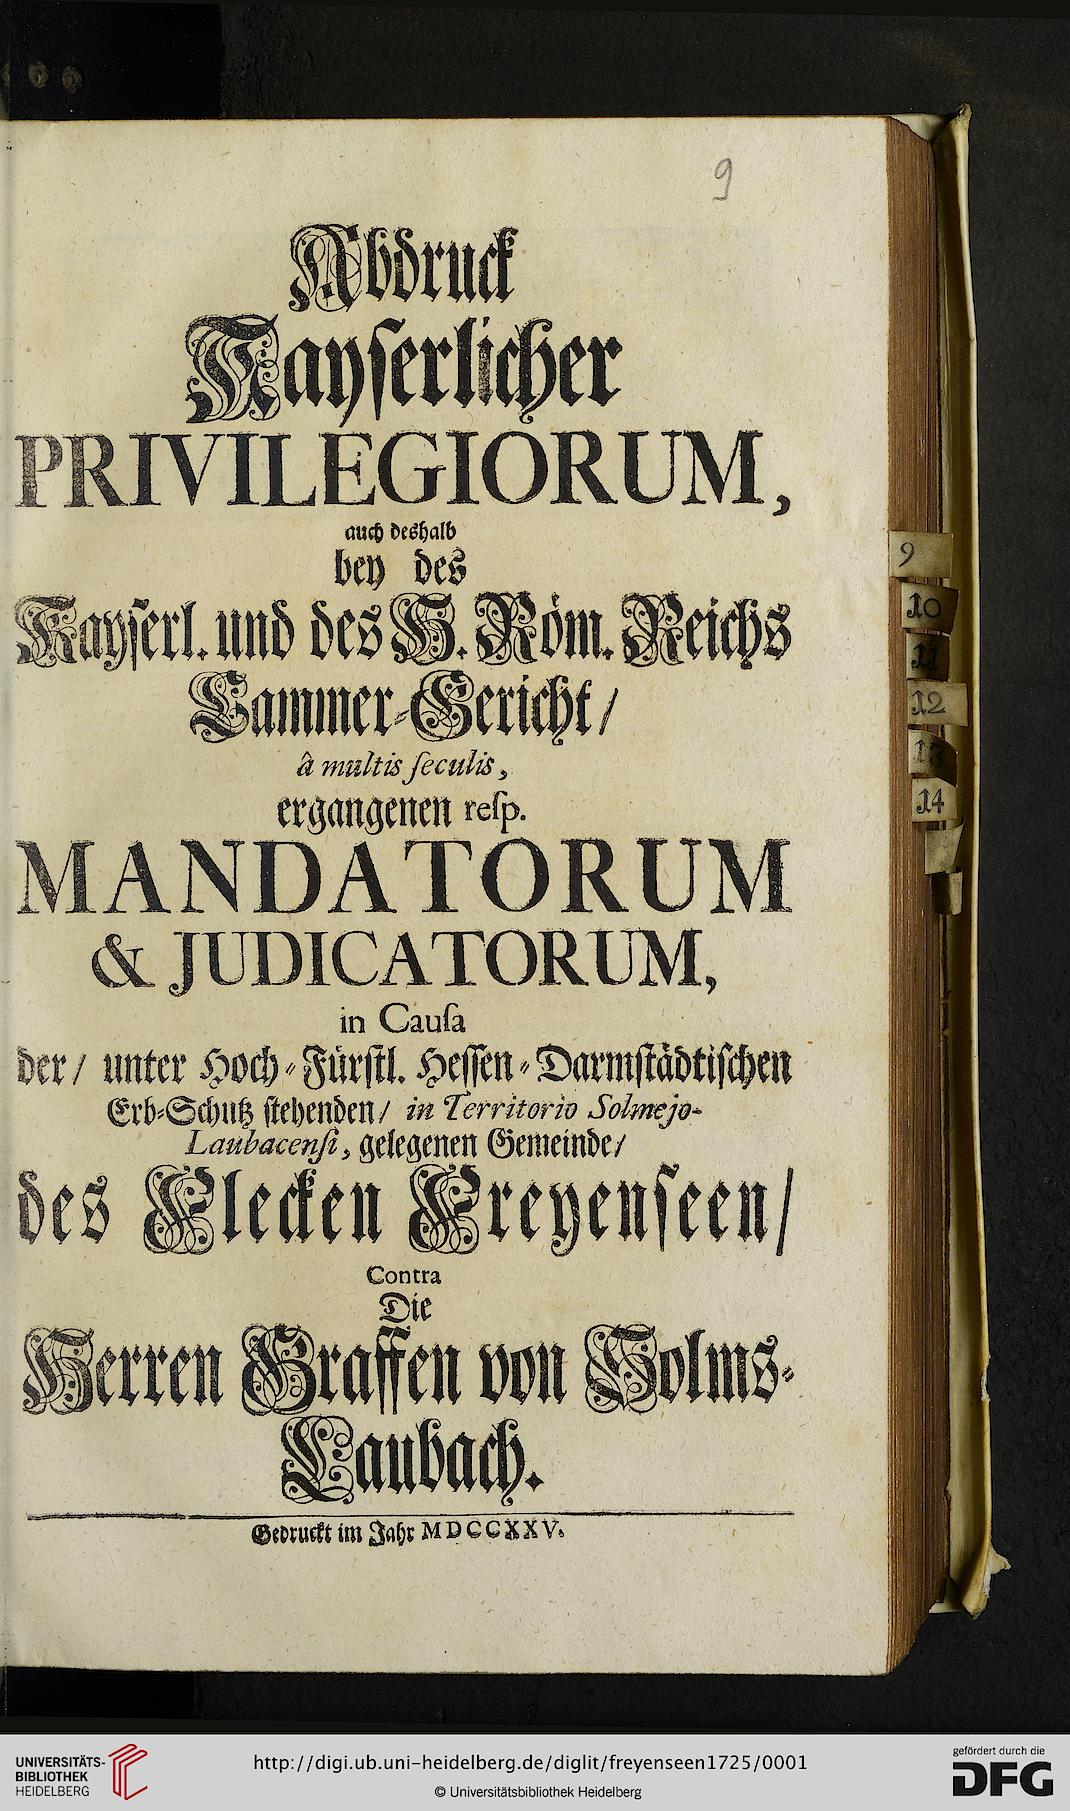 9
Abdruck
Kayserlicher
PRIVILEGIORUM,
auch deshalb
bey des
Kayserl. und des H. Röm. Reichs
Cammer-Gericht /
â multis ſeculis,
ergangenen reſp.
MANDATORUM
& JUDICATORUM,
in Cauſa
der / unter Hoch-Fürstl. Hessen-Darmstädtischen
Erb-Schutz stehenden / in Territorio Solmejo-
Laubacenſi, gelegenen Gemeinde /
des Flecken Freyenseen /
Contra
Die
Herren Graffen von Solms-
Laubach.
Gedruckt im Jahr MDCCXXV.
9
10
11
12
13
14
UNIVERSITÄTS-
BIBLIOTHEK
HEIDELBERG
http://digi.ub.uni-heidelberg.de/diglit/freyenseen1725/0001
© Universitätsbibliothek Heidelberg
gefördert durch die
DFG